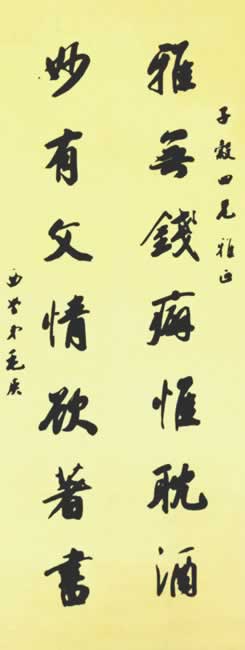 子穀四兄雅正
雅無錢癖惟耽酒
妙有文情欲著書
西堂弟毛庚